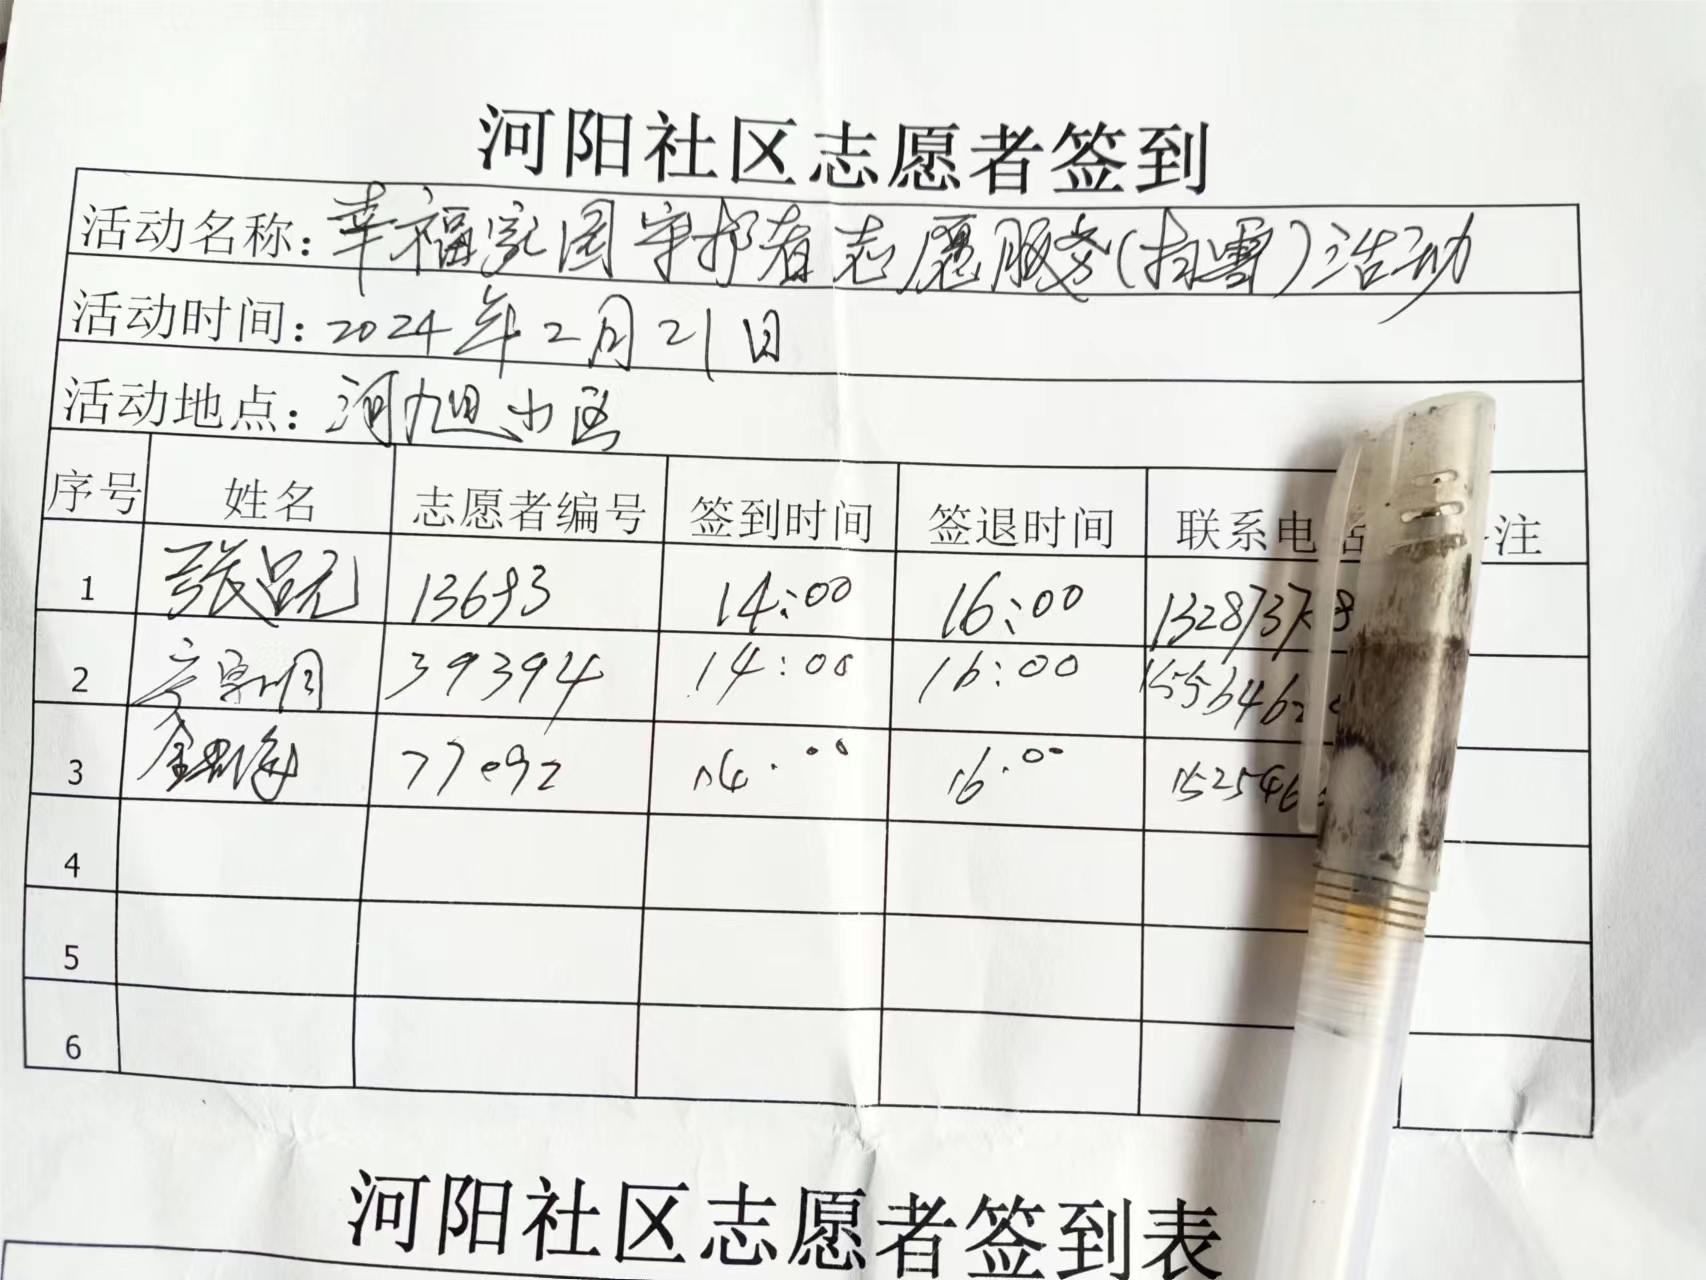 河阳社区志愿者签到
活动名称：幸福家园守护者志愿服务(扫雪)活动
活动时间：2024年2月21日
活动地点：河旭小区
序号 姓名 志愿者编号 签到时间 签退时间 联系电话 注
1 张 13693 14:00 16:00 132873
2 39394 14:00 16:00 1556462
3 77092 14:00 16:00 152546
4
5
6
河阳社区志愿者签到表